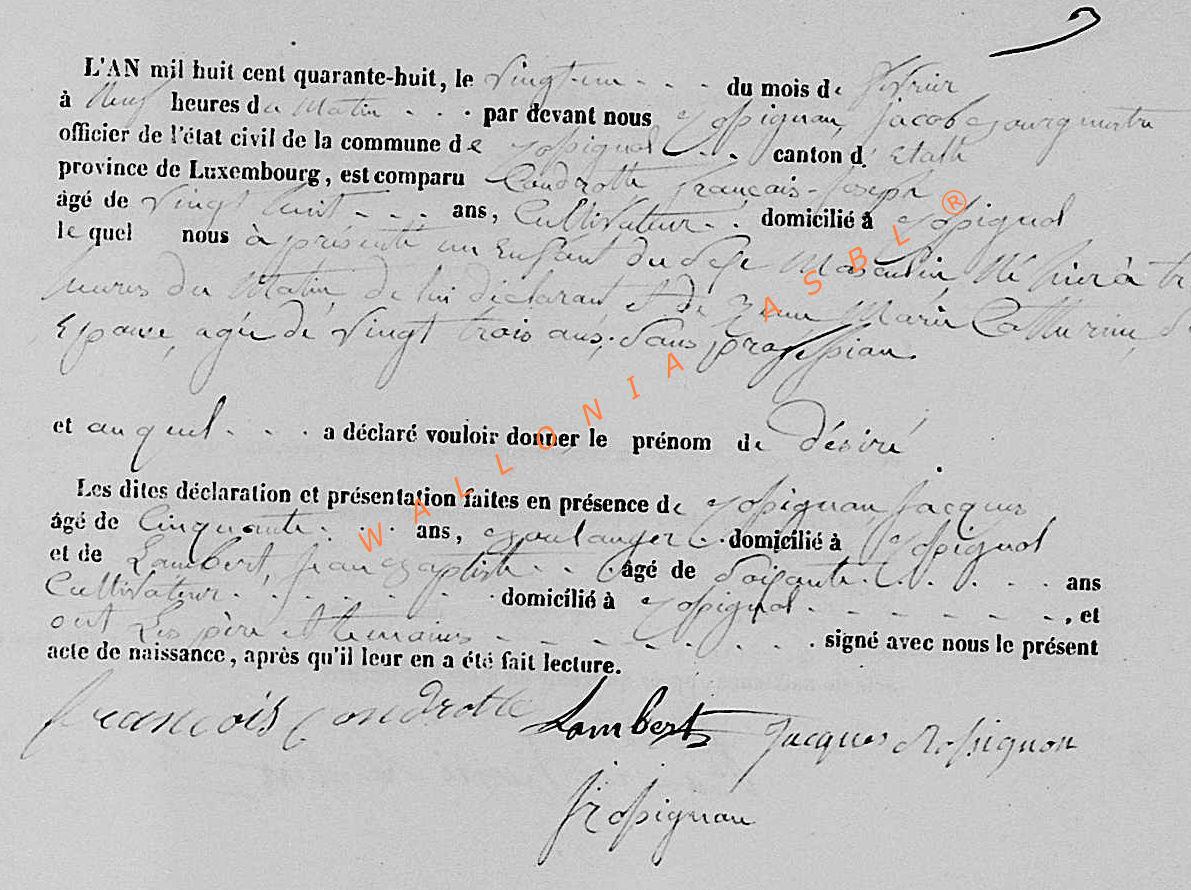 L'AN mil huit cent quarante-huit, le Vingt-un - - - du mois de Fevrier
à Neuf heures du Matin - - - par devant nous Rossignon, Jacob Bourgmestre
officier de l'état civil de la commune de Rossignol - - - canton d'Etalle
province de Luxembourg, est comparu Condrotte François-Joseph
âgé de Vingt huit - - - ans, Cultivateur - . domicilié à Rossignol
lequel nous à présenté un Enfant du Sexe Masculin, Né hier à
heures du Matin, de lui déclarant et de Marie Catherine,
Epouse, agée de Vingt trois ans, Sans profession.
et auquel - - - a déclaré vouloir donner le prénom de Désiré
Les dites déclaration et présentation faites en présence de Rossignon Jacques
âgé de Cinquante - - - ans, Boulanger - - domicilié à Rossignol
et de Lambert, Jean Baptiste - - âgé de Soisante - - - - - ans
Cultivateur - - - - - - domicilié à Rossignol - - - - - - , et
ont Les père et temoins - - - - - - - - signé avec nous le présent
acte de naissance, après qu'il leur en a été fait lecture.
françois Condrotte Lambert Jacques Rossignon
J Rossignon
WALLONIA ASBL ®